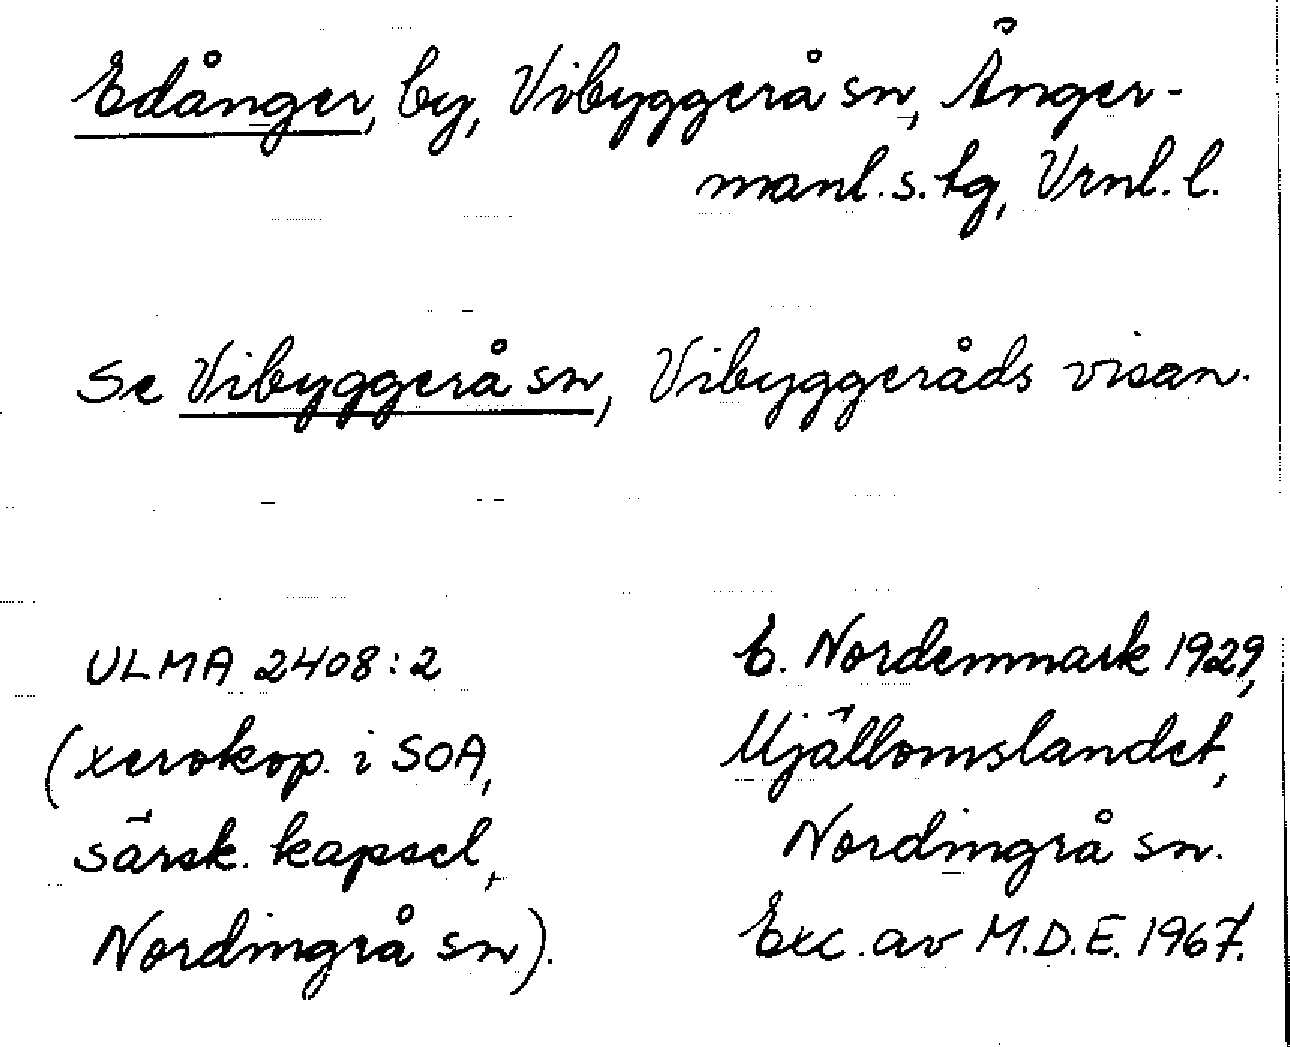 Edånger, by, Vibyggerå sn, Ånger-
manl. s. tg, Vrnl. l.
Se Vibyggerå sn, Vibyggeråds visan.
ULMA 2408:2
(xerokop. i SOA,
särsk. kapsel,
Nordingrå sn).
E. Nordenmark 1929,
Mjällomslandet,
Nordingrå sn.
Exc. av M.D.E. 1967.